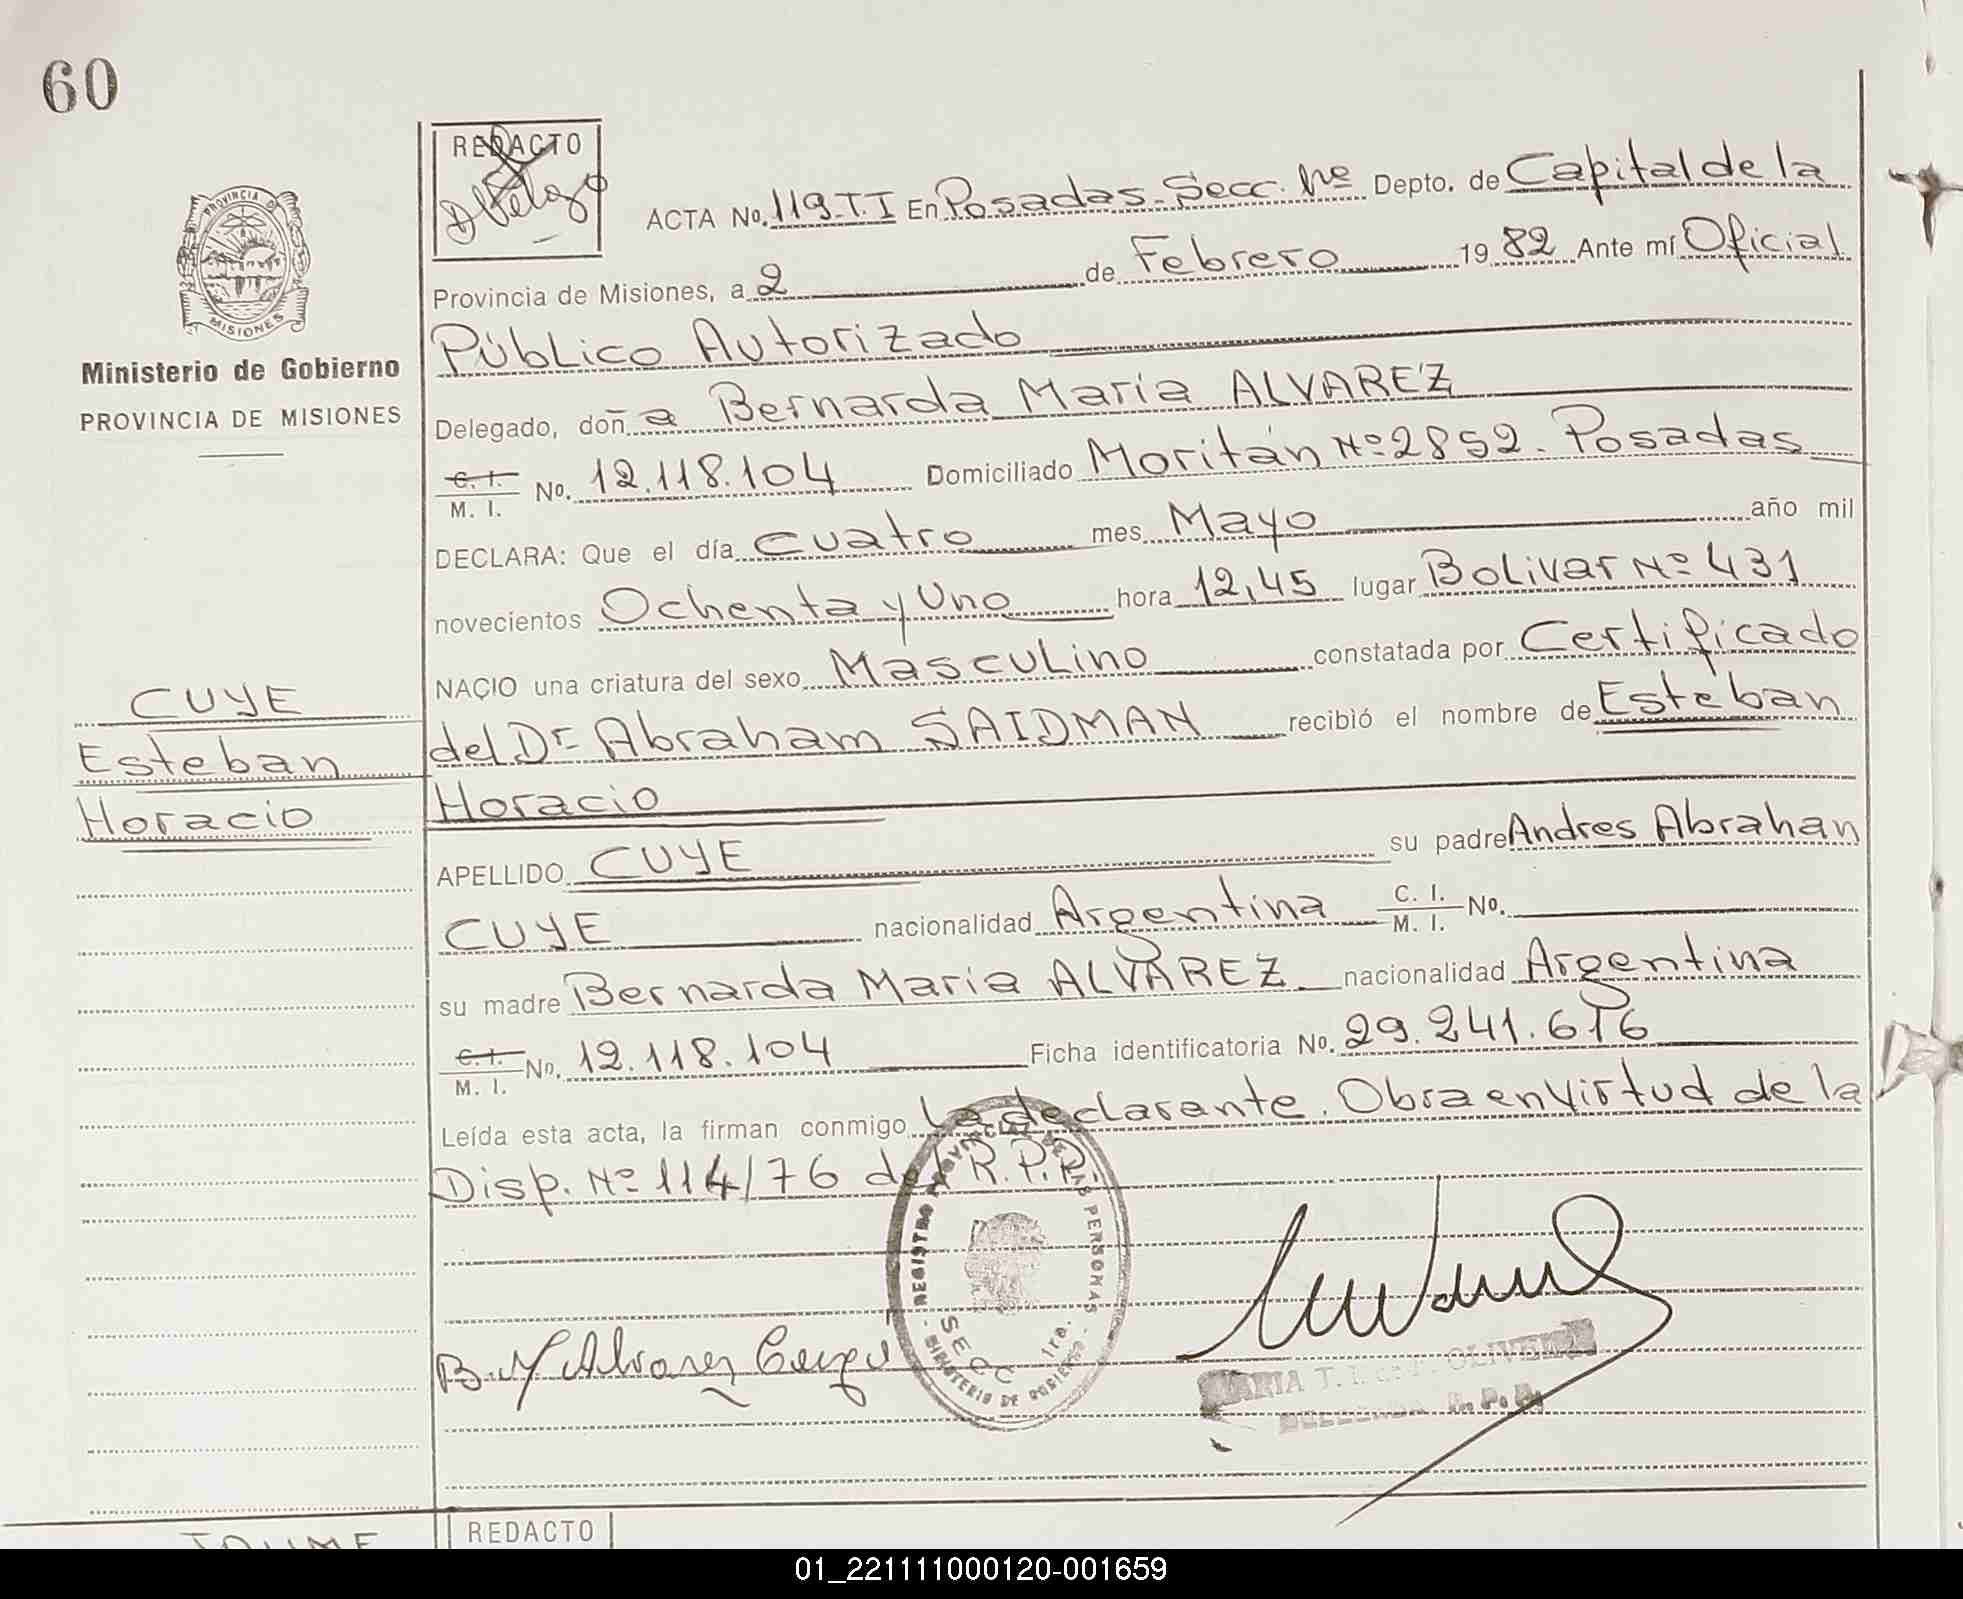 60
REDACTO
PROVINCIA DE
MISIONES
Ministerio de Gobierno
PROVINCIA DE MISIONES
ACTA No. 119.T.I En Posadas-Secc. 1ra Depto. de Capital de la
Provincia de Misiones, a 2 de Febrero 1982 Ante mí Oficial
Público Autorizado
Delegado, doña Bernarda María ALVAREZ
C. I.
M. I. No. 12.118.104 Domiciliado Moritán Nº 2852. Posadas
DECLARA: Que el día cuatro mes Mayo año mil
novecientos Ochenta y Uno hora 12,45 lugar Bolivar Nº 431
NACIO una criatura del sexo Masculino constatada por Certificado
del Dr Abraham SAIDMAN recibió el nombre de Esteban
Horacio
CUYE
Esteban
Horacio
APELLIDO CUYE su padre Andres Abrahan
CUYE nacionalidad Argentina C. I.
M. I. No.
su madre Bernarda Maria ALVAREZ nacionalidad Argentina
C. I.
M. I. No. 12.118.104 Ficha identificatoria No. 29.241.616
Leída esta acta, la firman conmigo la declarante. Obra en Virtud de la
Disp. Nº 114/76 del R.P.P.
REGISTRO PROVINCIAL DE LAS PERSONAS
SECC 1ra.
MINISTERIO DE GOBIERNO
B. M Alvarez
MARIA T. OLIVEIRA
R. P. P.
REDACTO
01_221111000120-001659